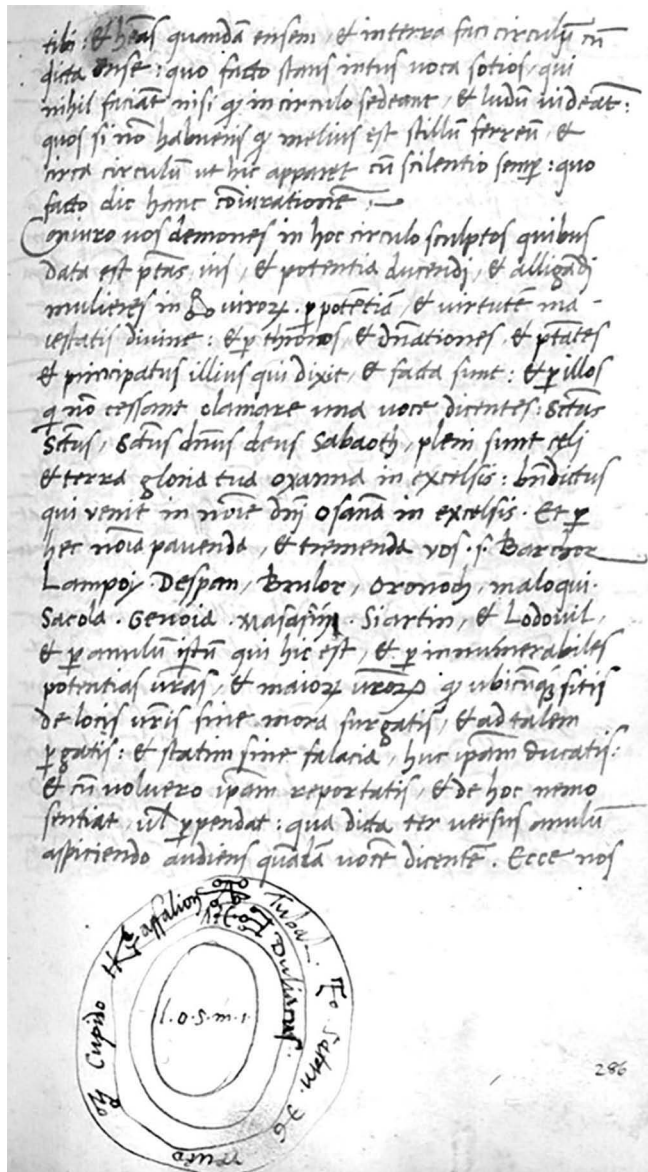 tibi: et hẽas quandã ensem, et in terra fac circulũ cũ
dicta ense: quo facto stans intus voca sotios, qui
nihil faciãt nisi qꝫ in circulo sedeant, et ludũ videãt:
quos si nõ habueris qꝫ melius est stillũ ferreũ, et
circa circulũ ut hic apparet cũ scilentio semꝑ: quo
facto dic hanc cõiurationẽ
Coniuro vos demones in hoc circulo sculptos quibus
data est ptãs, et potentia ducendi, et alligãdi
mulieres in virorꝝ ꝑ potẽtiã, et virtutẽ ma-
iestatis divine: et ꝑ thronos, et dñationes, et ptãtes
et principatus illius qui dixit, et facta sunt: et ꝑ illos
q nõ cessant clamare una voce dicentes: Sctũs
Sctũs, Sctũs dñus deus Sabaoth, pleni sunt celi
et terra gloria tua oxanna in excelsis: bñdictus
qui venit in noĩe dñi osãna in excelsis. Et ꝑ
hec noĩa pavenda, et tremenda vos .s. Barchor
Lampoy. Despan, Brulor, Oronoth, maloqui.
Sacola. Genoia. Siartin, et Lodovil,
et ꝑ annulum istũ qui hic est, et ꝑ innumerabiles
potentias vrãs, et maiorꝝ vrõrꝝ qꝫ ubicũqꝫ sitis
de locis vrĩs sine mora surgatis, et ad talem
ꝑgatis: et statim sine falacia, huc ipsãm ducatis:
et cũ voluero ipsãm reportatis, et de hoc nemo
sentiat, vel ꝑpendat: qua dicta ter versus annulũ
aspiciendo audiens quandã vocẽ dicentẽ. Ecce nos
assalion
Tubal.
Duliatus.
Satan.
Venus
Cupido
l.o.s.m.i.
286